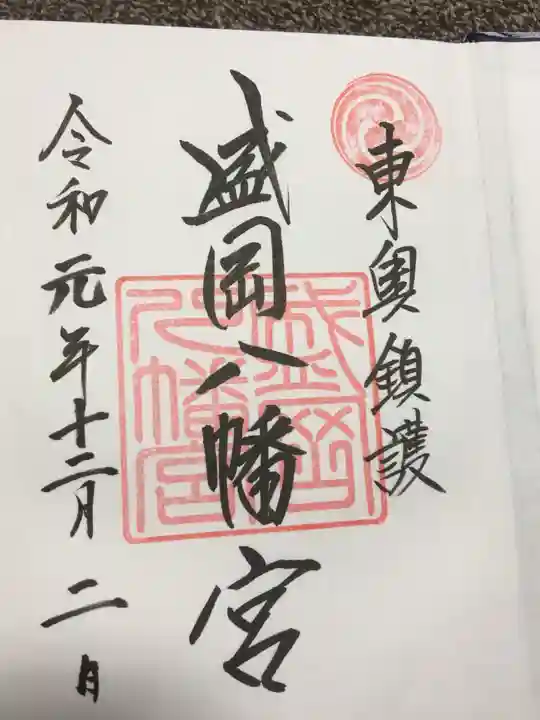 東奥鎮護
盛岡八幡宮
盛岡八幡宮
令和元年十二月二日